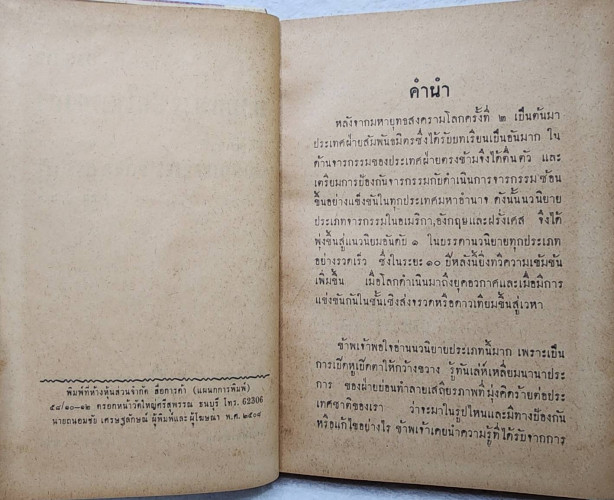 พิมพ์ที่ห้างหุ้นส่วนจำกัด สื่อการค้า (แผนกการพิมพ์)
๕๘/๑๐-๑๒ ตรอกหน้าวัดใหญ่ศรีสุพรรณ ธนบุรี โทร. 62306
นายถนอมชัย เศรษฐลักษณ์ ผู้พิมพ์และผู้โฆษณา พ.ศ. ๒๕๐๘
คำนำ
หลังจากมหายุทธสงครามโลกครั้งที่ ๒ เป็นต้นมา
ประเทศฝ่ายสัมพันธมิตรซึ่งได้รับบทเรียนเป็นอันมาก ใน
ด้านจารกรรมของประเทศฝ่ายตรงข้ามจึงได้ตื่นตัว และ
เตรียมการป้องกันจารกรรมกับดำเนินการจารกรรมซ้อน
ขึ้นอย่างแข็งขันในทุกประเทศมหาอำนาจ ดังนั้นนวนิยาย
ประเภทจารกรรมในอเมริกา,อังกฤษและฝรั่งเศส จึงได้
พุ่งขึ้นสู่แนวนิยมอันดับ ๑ ในบรรดานวนิยายทุกประเภท
อย่างรวดเร็ว ซึ่งในระยะ ๑๐ ปีหลังนี้ยิ่งทวีความเข้มข้น
เพิ่มขึ้น เมื่อโลกดำเนินมาถึงยุคอวกาศและเมื่อมีการ
แข่งขันกันในชั้นเชิงส่งจรวดหรือดาวเทียมขึ้นสู่เวหา
ข้าพเจ้าพอใจอ่านนวนิยายประเภทนี้มาก เพราะเป็น
การเปิดหูเปิดตาให้กว้างขวาง รู้ทันเล่ห์เหลี่ยมนานาประ
การ ของฝ่ายบ่อนทำลายเสถียรภาพที่มุ่งคิดร้ายต่อประ
เทศชาติของเรา ว่าจะมาในรูปไหนและมีทางป้องกัน
หรือแก้ไขอย่างไร ข้าพเจ้าเคยนำความรู้ที่ได้รับจากการ